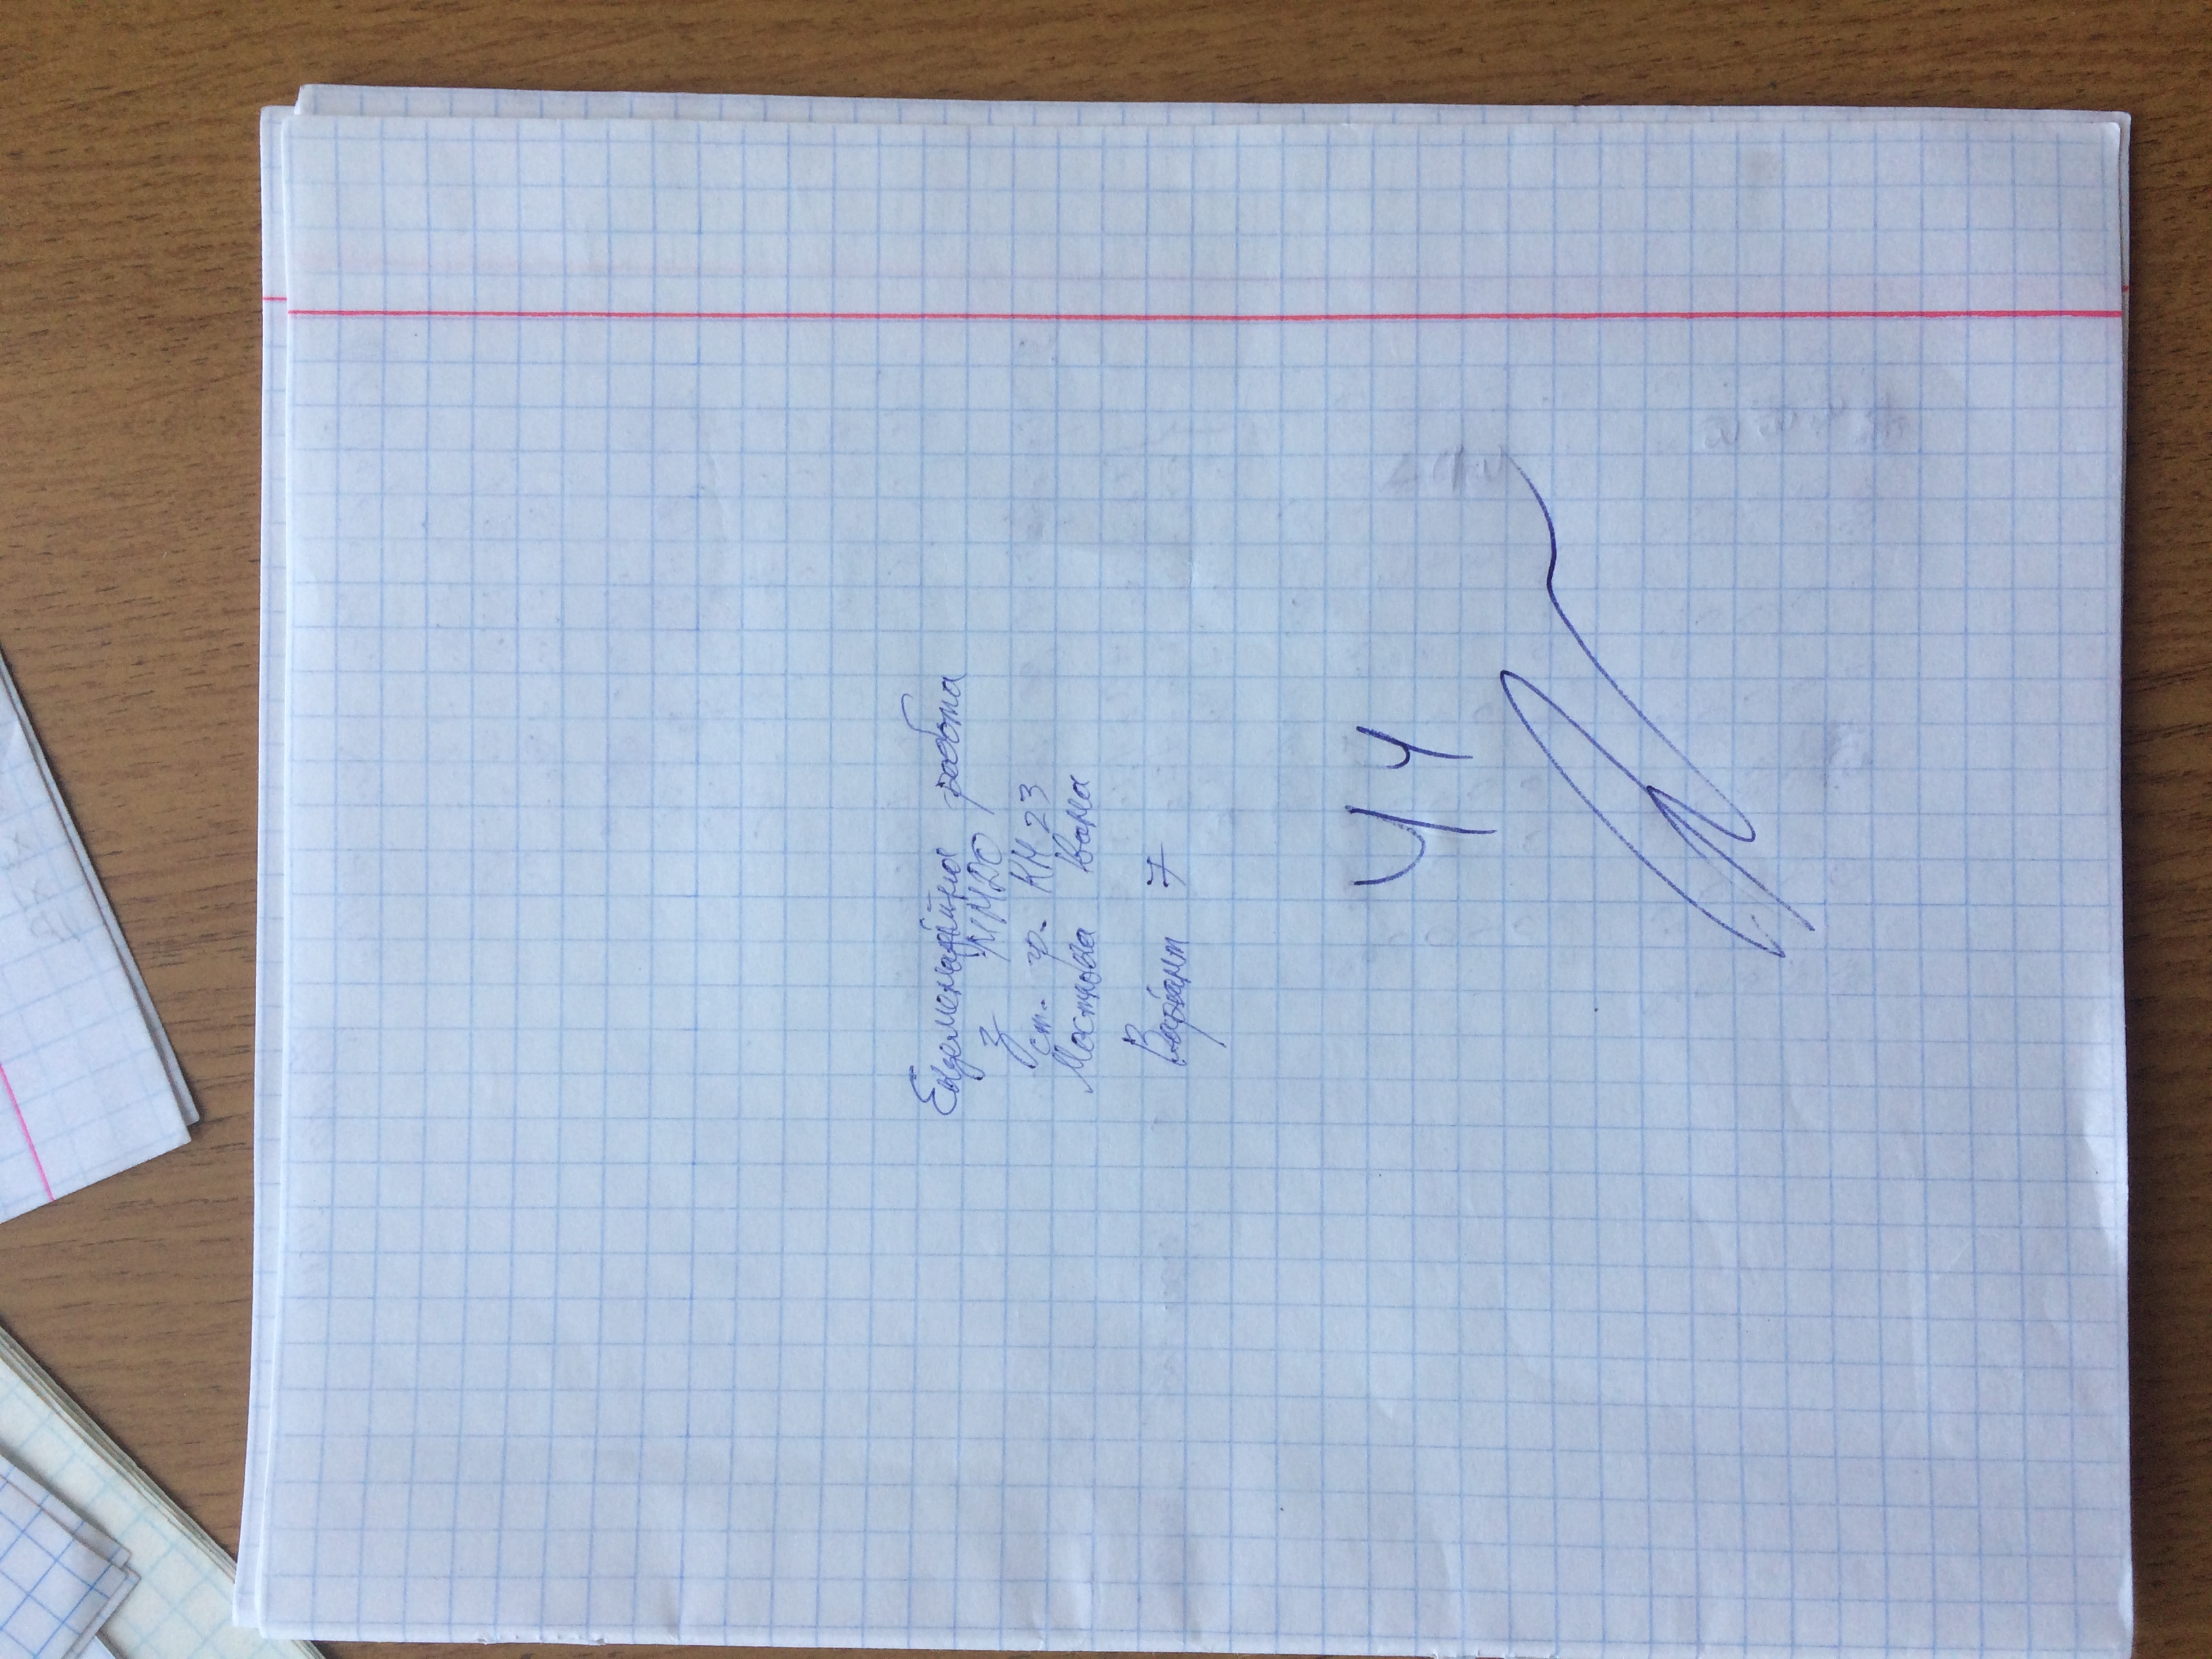 Екзаменаційна робота
з ММДО
ст. гр. КН 23
Мострова Івана
Варіант 7
44